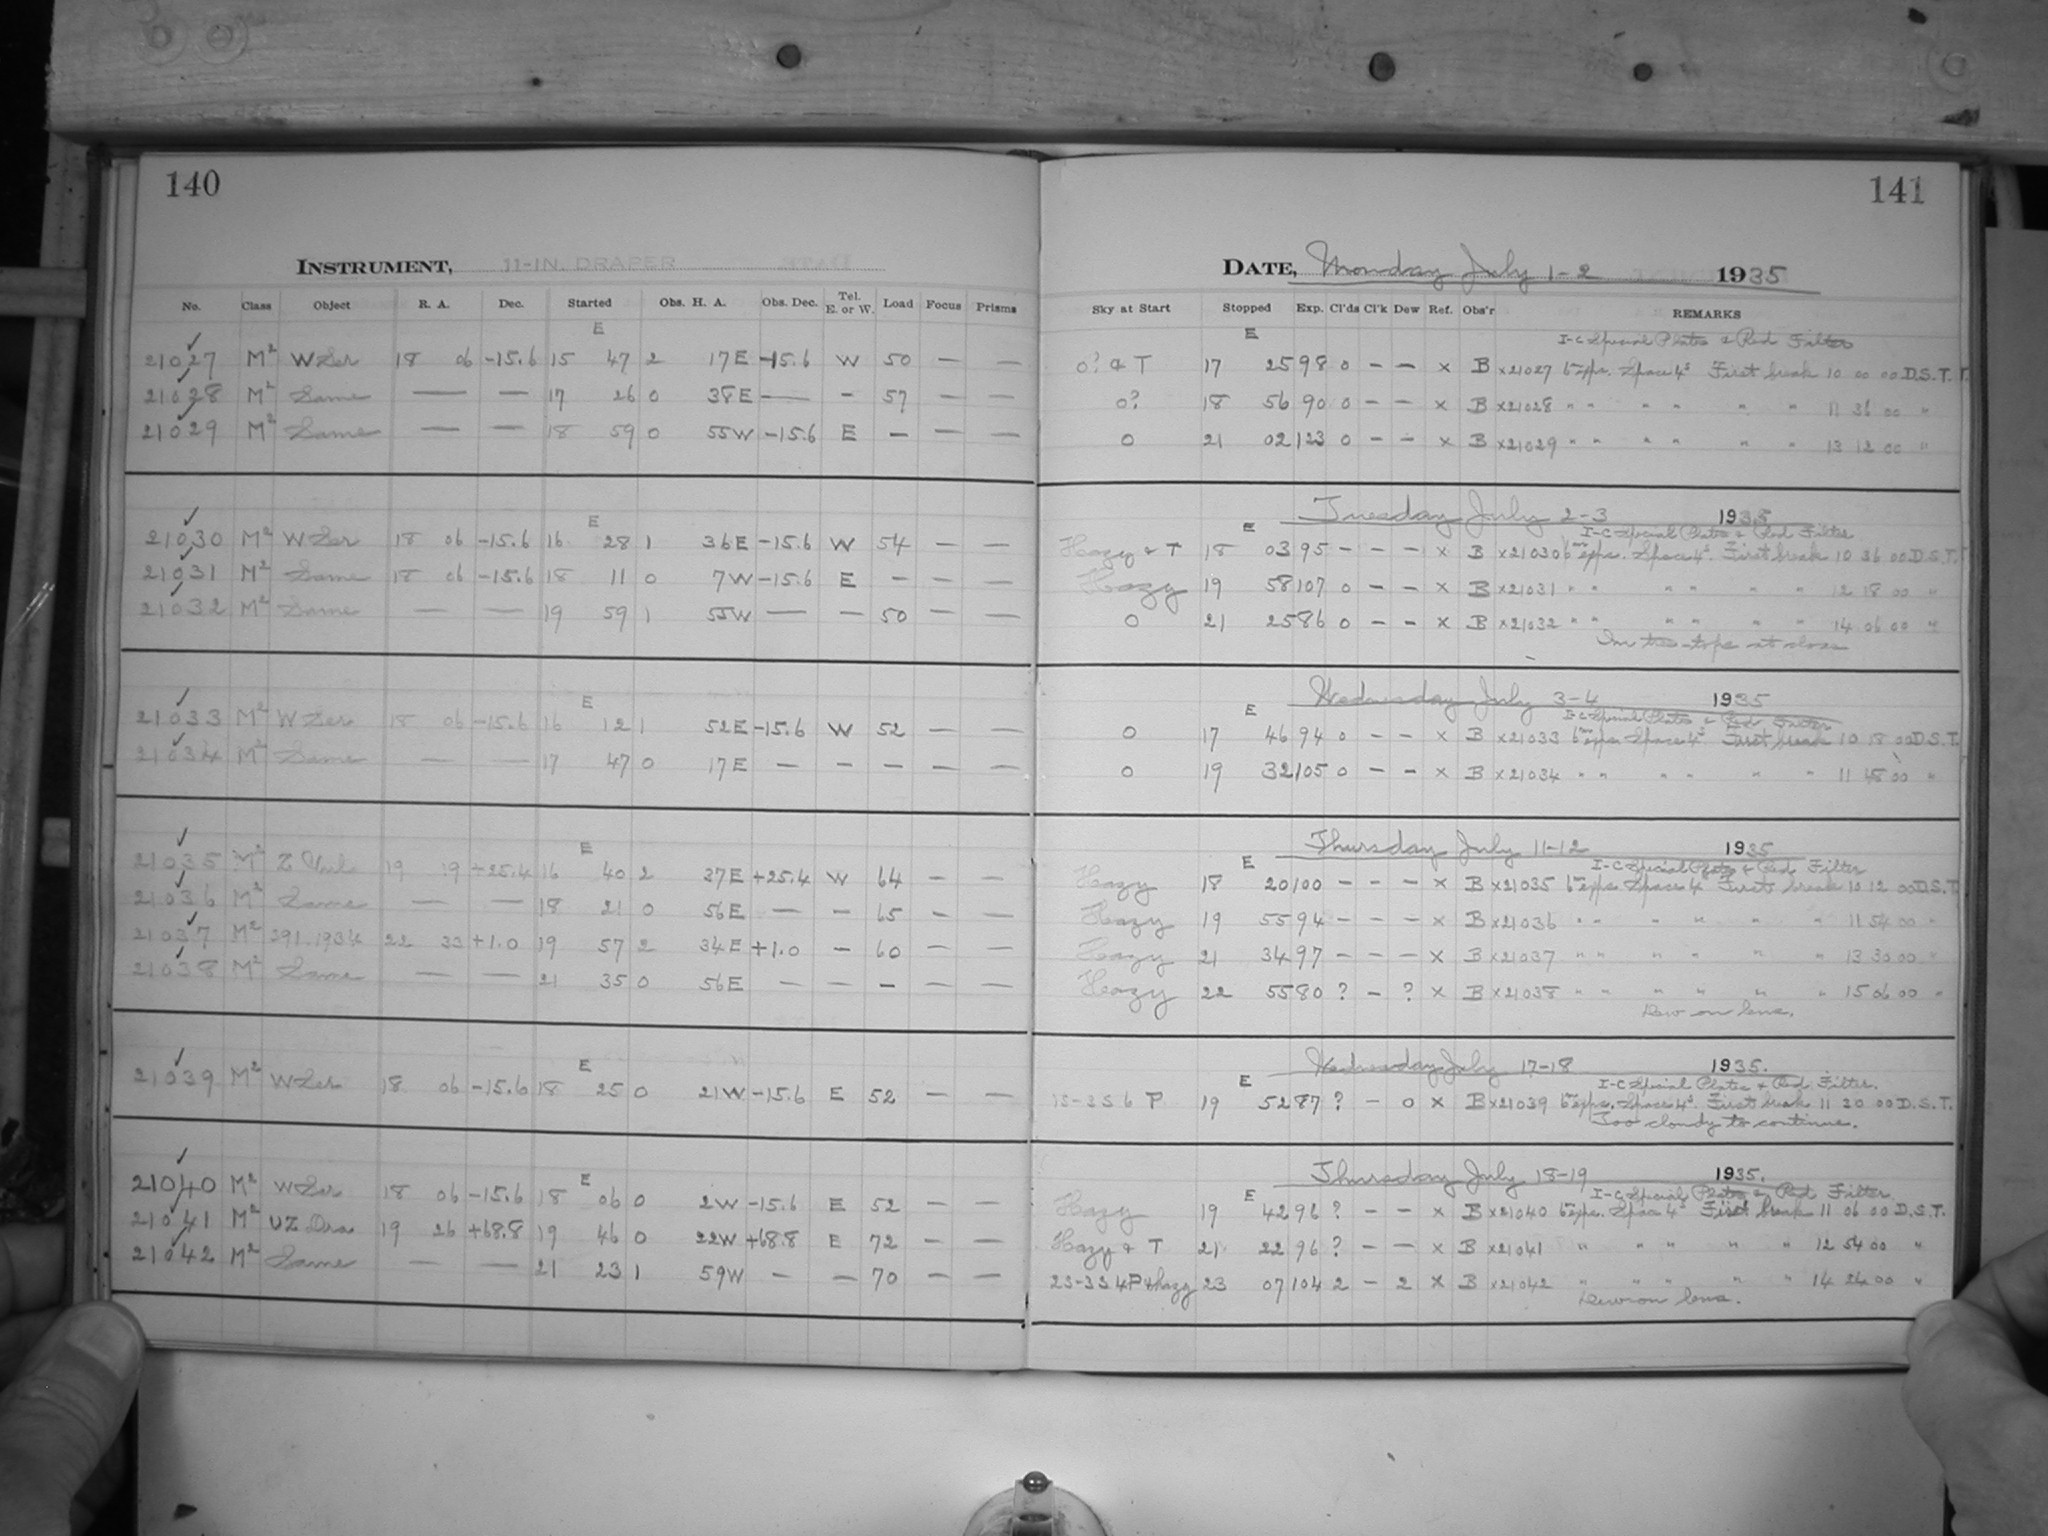 140
INSTRUMENT, 11-IN. DRAPER
No. Class Object R. A. Dec. Started Obs. H. A. Obs. Dec. Tel. E. or W. Load Focus Prisms
E
21027 M² W Ser 18 06 -15.6 15 47 2 17E -15.6 W 50 — —
21028 M² Same — — 17 26 0 38E — - 57 — —
21029 M² Same — — 18 59 0 55W -15.6 E — — —
E
21030 M² W Ser 18 06 -15.6 16 28 1 36E -15.6 W 54 — —
21031 M² Same 18 06 -15.6 18 11 0 7W -15.6 E — — —
21032 M² Same — — 19 59 1 55W — — 50 — —
E
21033 M² W Ser 18 06 -15.6 16 12 1 52E -15.6 W 52 — —
21034 M² Same — — 17 47 0 17E — — — — —
E
21035 M² Z Vul 19 19 +25.4 16 40 2 37E +25.4 W 64 — —
21036 M² Same — — 18 21 0 56E — - 65 — —
21037 M² 391.1934 22 33 +1.0 19 57 2 34E +1.0 — 60 — —
21038 M² Same — — 21 35 0 56E — — — — —
E
21039 M² W Ser 18 06 -15.6 18 25 0 21W -15.6 E 52 — —
E
21040 M² W Ser 18 06 -15.6 18 06 0 2W -15.6 E 52 — —
21041 M² UZ Dra 19 26 +68.8 19 46 0 22W +68.8 E 72 — —
21042 M² Same — — 21 23 1 59W — — 70 — —
141
DATE, Monday July 1-2 1935
Sky at Start Stopped Exp. Cl'ds Cl'k Dew Ref. Obs'r REMARKS
E I-C Special Plates & Red Filter
0? & T 17 25 98 0 — — x B x21027 6 exps. Space 4ˢ First break 10 00 00 D.S.T.
0? 18 56 90 0 — — x B x21028 " " " " " " 11 36 00 "
0 21 02 123 0 — — x B x21029 " " " " " " 13 12 00 "
Tuesday July 2-3 1935
E I-C Special Plates & Red Filter
Hazy & T 18 03 95 — — — x B x21030 6 exps. Space 4ˢ. First break 10 36 00 D.S.T.
Hazy 19 58 107 0 — — x B x21031 " " " " " " 12 18 00 "
0 21 25 86 0 — — x B x21032 " " " " " " 14 06 00 "
In tree-tops at close
Wednesday July 3-4 1935
E I-C Special Plates & Red Filter
0 17 46 94 0 — — x B x21033 6 exps. Space 4ˢ First break 10 18 00 D.S.T.
0 19 32 105 0 — — x B x21034 " " " " " " 11 48 00 "
Thursday July 11-12 1935
E I-C Special Plates & Red Filter
Hazy 18 20 100 — — — x B x21035 6 exps. Space 4 First break 10 12 00 D.S.T.
Hazy 19 55 94 — — — x B x21036 " " " " " " 11 54 00 "
Hazy 21 34 97 — — — x B x21037 " " " " " " 13 30 00 "
Hazy 22 55 80 ? — ? x B x21038 " " " " " " 15 06 00 "
Dew on lens.
Wednesday July 17-18 1935.
E I-C Special Plates & Red Filter.
1S-3S 6 P 19 52 87 ? — 0 x B x21039 6 exps. Space 4ˢ. First break 11 30 00 D.S.T.
Too cloudy to continue.
Thursday July 18-19 1935.
E I-C Special Plates & Red Filter.
Hazy 19 42 96 ? — — x B x21040 6 exps. Space 4ˢ First break 11 06 00 D.S.T.
Hazy & T 21 22 96 ? — — x B x21041 " " " " " 12 54 00 "
2S-3S 4P & hazy 23 07 104 2 — 2 x B x21042 " " " " " 14 24 00 "
Dew on lens.